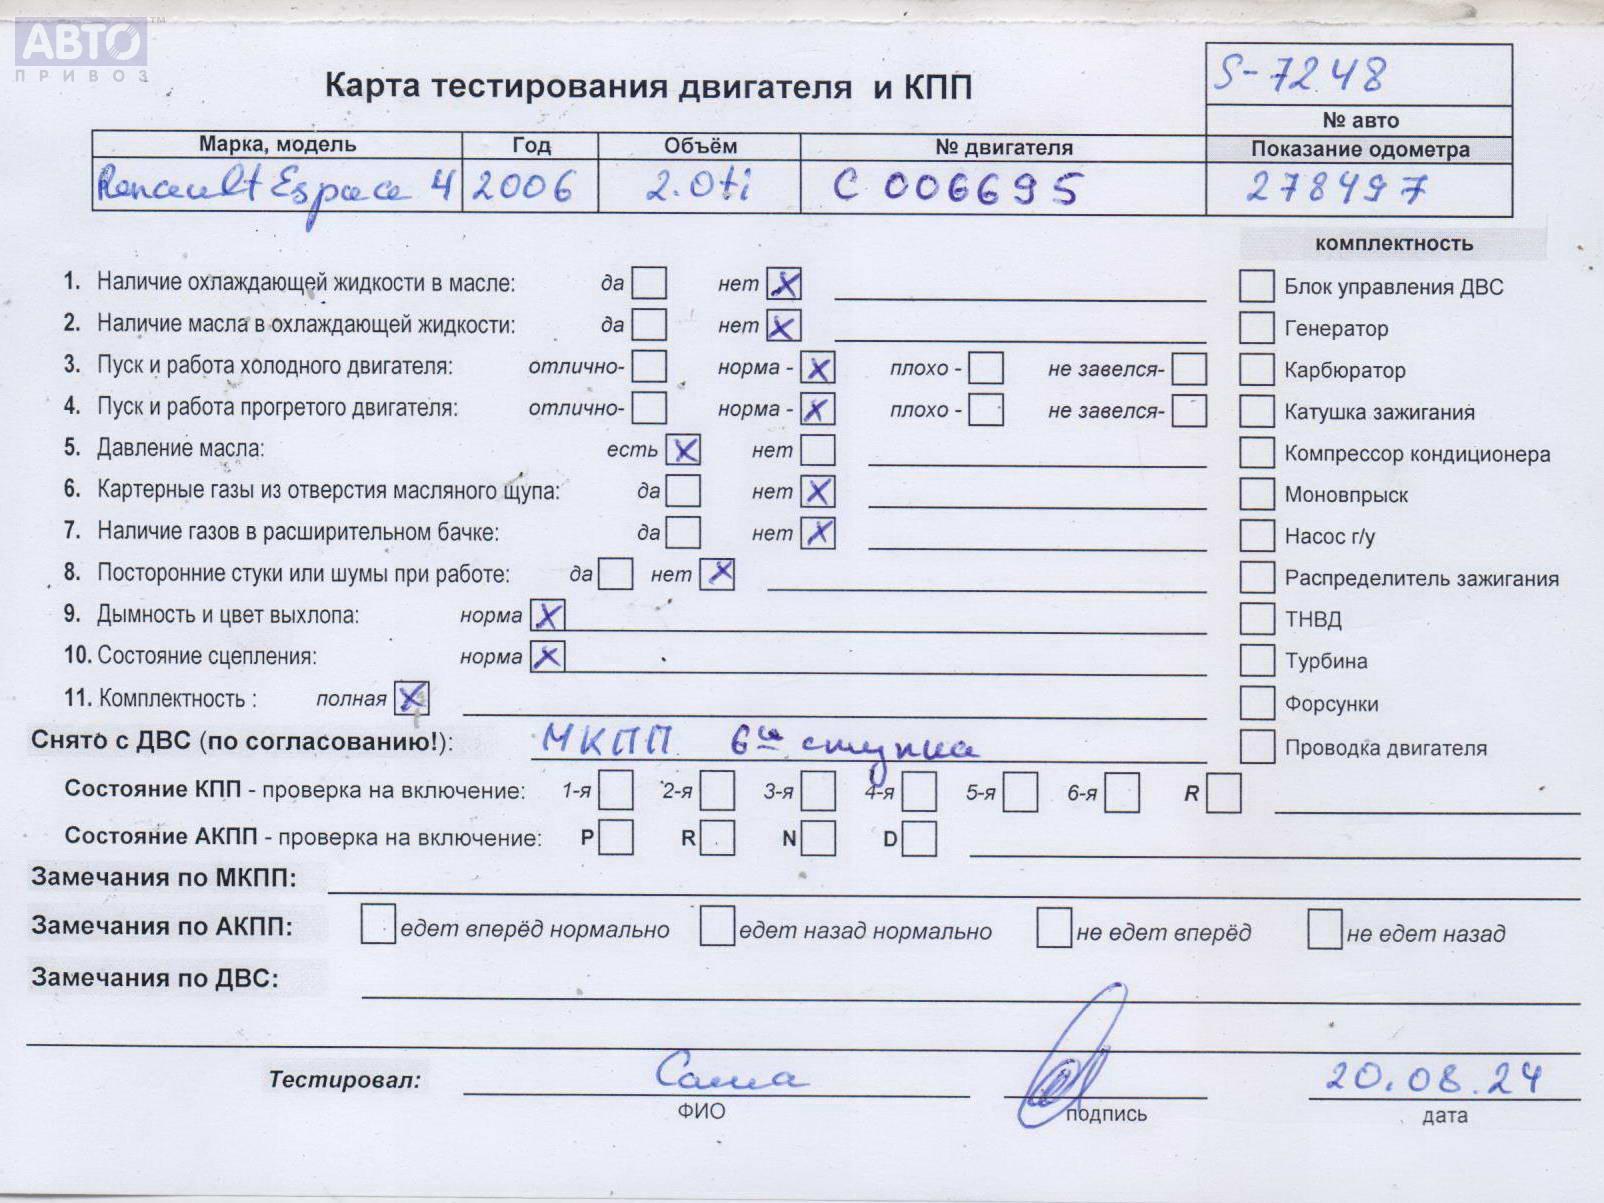 АВТО™
ПРИВОЗ
S-7248
Карта тестирования двигателя и КПП
№ авто
Марка, модель Год Объём № двигателя Показание одометра
Renault Espace 4 2006 2.0ti C 006695 278497
комплектность
1. Наличие охлаждающей жидкости в масле: да нет X Блок управления ДВС
2. Наличие масла в охлаждающей жидкости: да нет X Генератор
3. Пуск и работа холодного двигателя: отлично- норма - X плохо - не завелся- Карбюратор
4. Пуск и работа прогретого двигателя: отлично- норма - X плохо - не завелся- Катушка зажигания
5. Давление масла: есть X нет Компрессор кондиционера
6. Картерные газы из отверстия масляного щупа: да нет X Моновпрыск
7. Наличие газов в расширительном бачке: да нет X Насос г/у
8. Посторонние стуки или шумы при работе: да нет X Распределитель зажигания
9. Дымность и цвет выхлопа: норма X ТНВД
10. Состояние сцепления: норма X Турбина
11. Комплектность : полная X Форсунки
Снято с ДВС (по согласованию!): МКПП 6ти ступка Проводка двигателя
Состояние КПП - проверка на включение: 1-я 2-я 3-я 4-я 5-я 6-я R
Состояние АКПП - проверка на включение: P R N D
Замечания по МКПП:
Замечания по АКПП: едет вперёд нормально едет назад нормально не едет вперёд не едет назад
Замечания по ДВС:
Тестировал: Саша 20.08.24
ФИО подпись дата